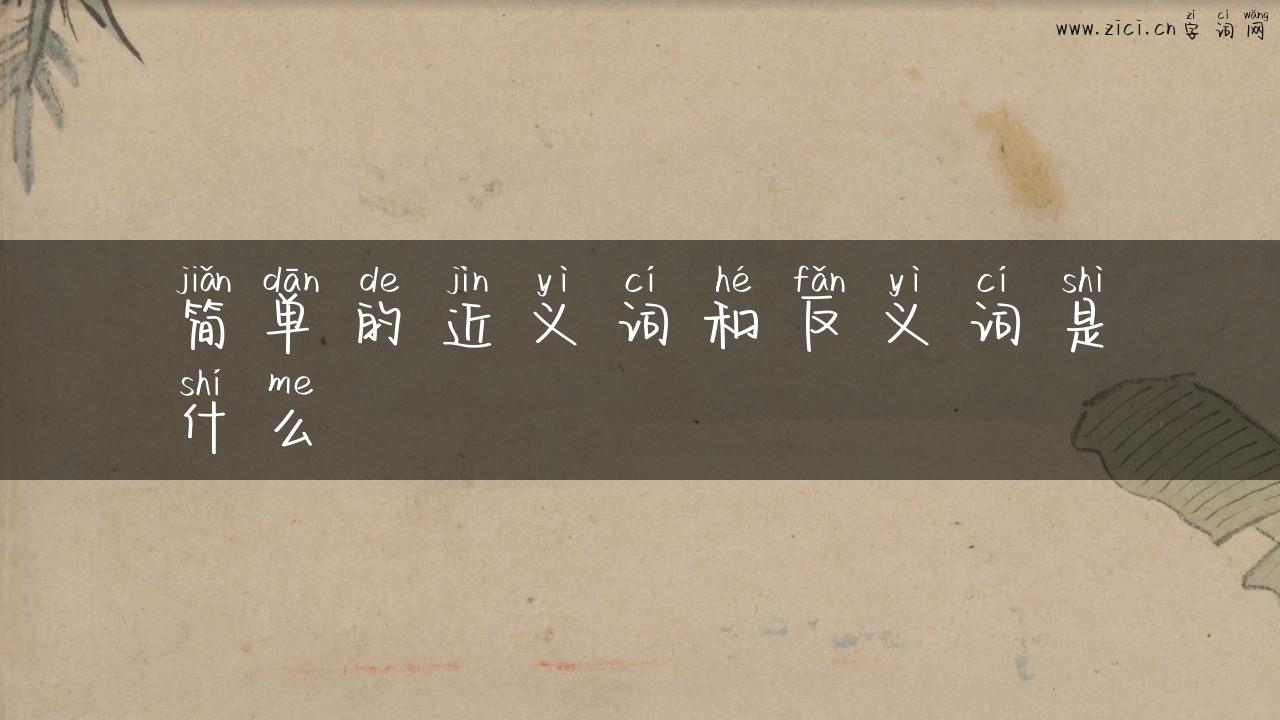 zì cí wǎng
www.zici.cn 字词网
jiǎn dān de jìn yì cí hé fǎn yì cí shì
简单的近义词和反义词是
shí me
什么